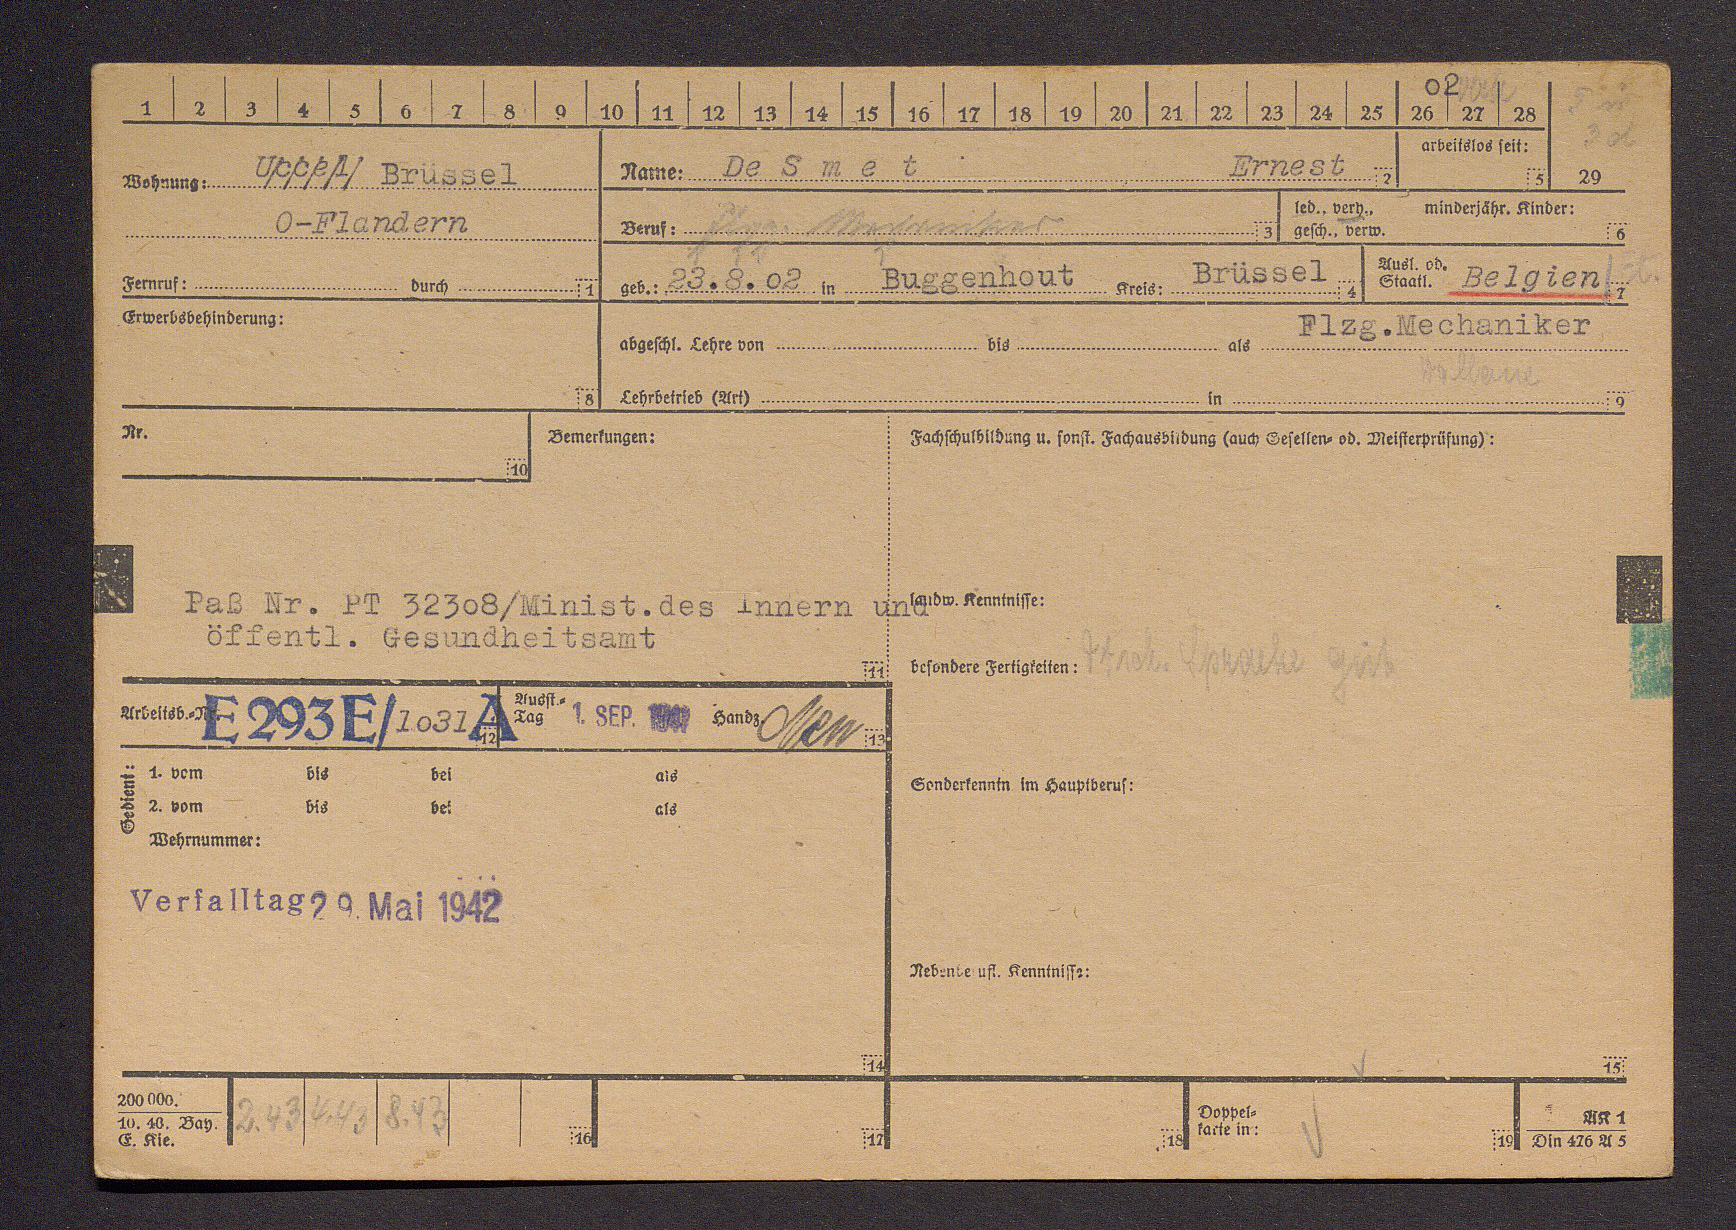 02
1 2 3 4 5 6 7 8 9 10 11 12 13 14 15 16 17 18 19 20 21 22 23 24 25 26 27 28
Wohnung: Brüssel
O-Flandern
Fernruf: durch 1
Name: De S m e t Ernest 2
arbeitslos seit: 5
29
Beruf: Flzg. Mechaniker 3
led., verh., gesch., verw.
minderjähr. Kinder: 6
geb.: 23.8.02 in Buggenhout Kreis: Brüssel 4
Ausl. od. Staatl. Belgien 7
Erwerbsbehinderung:
8
Flzg.Mechaniker
abgeschl. Lehre von bis als
Lehrbetrieb (Art) in 9
Nr.
10
Bemerkungen:
Paß Nr. PT 32308/Minist.des Innern und
öffentl. Gesundheitsamt
11
Fachschulbildung u. sonst. Fachausbildung (auch Gesellen- od. Meisterprüfung):
landw. Kenntnisse:
besondere Fertigkeiten: Sprache gut
Sonderkenntn im Hauptberuf:
Nebenberufl. Kenntnisse:
15
Arbeitsb.-Nr. E293E/1031 A 12
Ausst.-Tag 1. SEP. Handz. 13
Gedient:
1. vom bis bei als
2. vom bis bei als
Wehrnummer:
Verfalltag 29. Mai 1942
14
200 000.
10. 40. Bay.
E. Kie.
2.43 4.43 8.43
16
17
18
Doppel-
karte in:
19
AK 1
Din 476 A 5